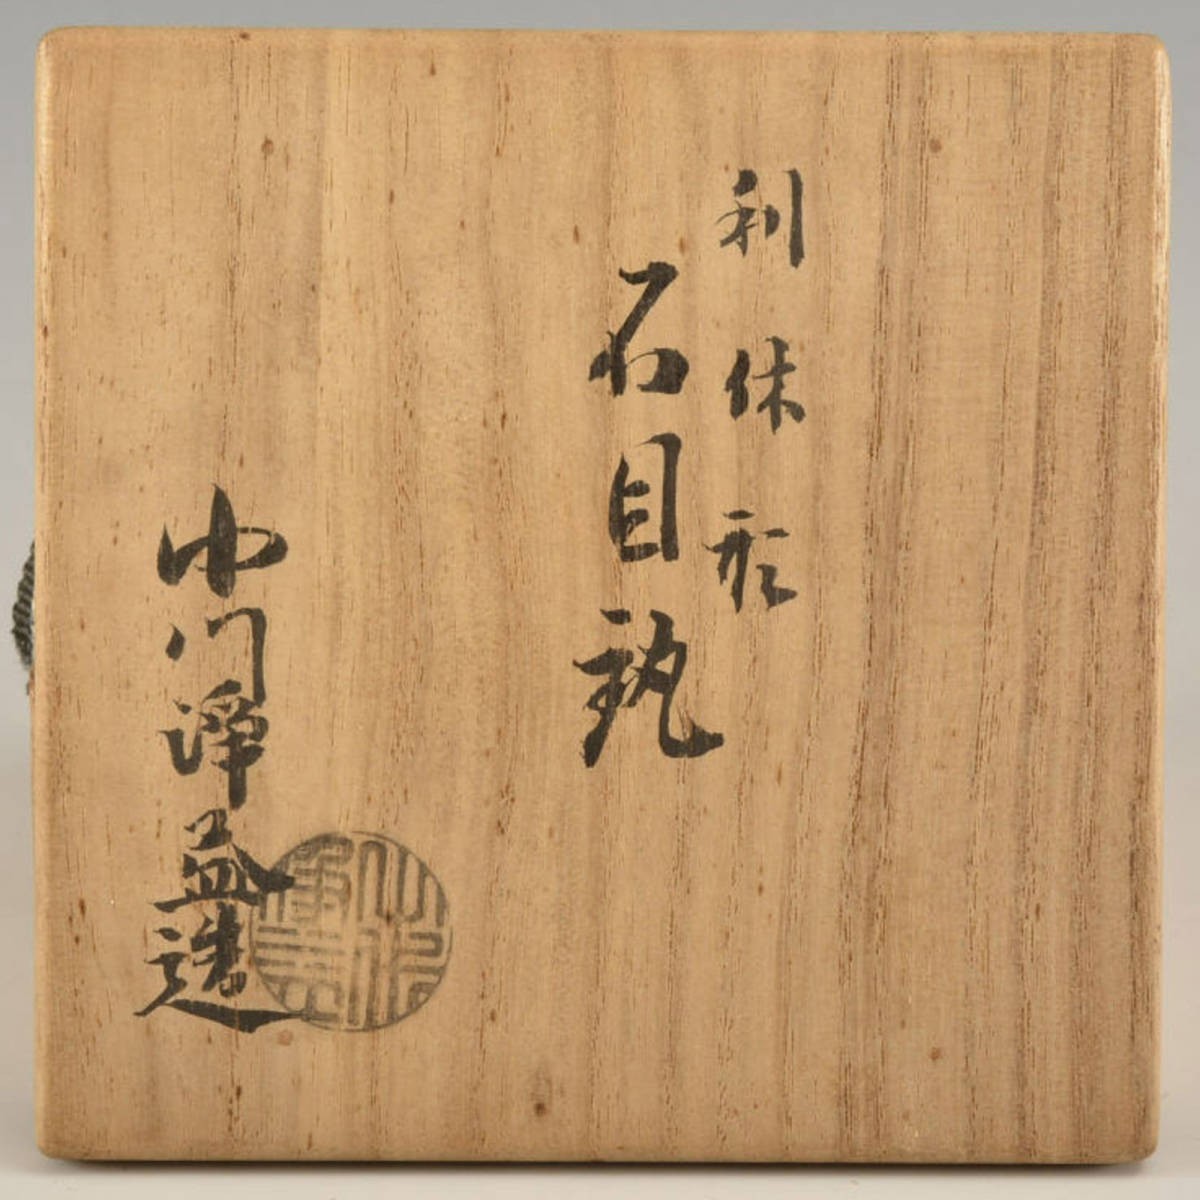 利休形
石目
中川淨益造